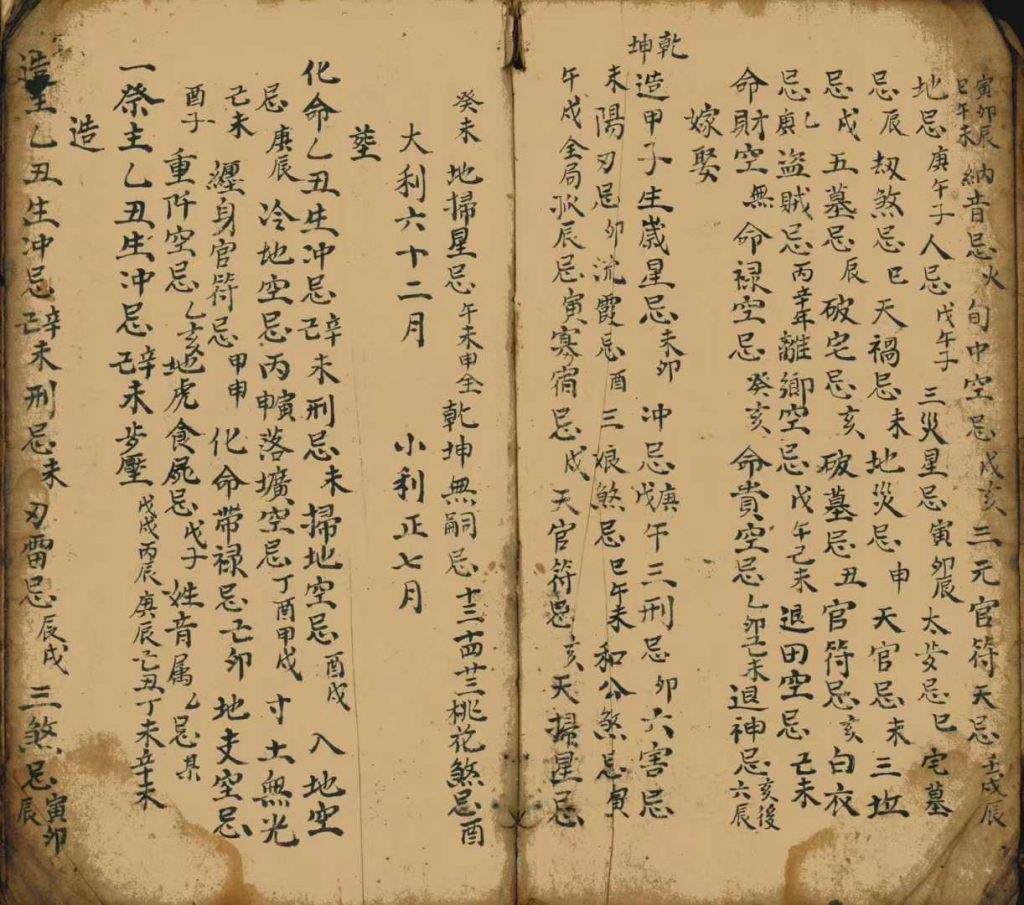 寅卯辰巳午未納音忌火旬中空忌戊亥三元官符天忌壬戌辰
地忌庚午子人忌戊午子三災星忌寅卯辰太岁忌巳宅墓
忌辰劫煞忌巳天禍忌未地災忌申天官忌未三坵
忌戊五墓忌辰破宅忌亥破墓忌丑官符忌亥白衣
忌庚乙盜賊忌丙辛年離鄉空忌戊午己未退田空忌己未
命財空無命禄空忌癸亥命貴空忌乙卯己未退神忌亥後六辰
嫁娶
乾坤造甲子生歲星忌未卯冲忌戊庚午三刑忌卯六害忌
未陽刃忌卯流霞忌酉三娘煞忌巳午未和公煞忌寅
午戌全局狄辰忌寅寡宿忌戌天官符忌亥天掃星忌
癸未地掃星忌午未申全乾坤無嗣忌十三十四廿三桃花煞忌酉
大利六十二月小利正七月
塟
化命乙丑生冲忌辛己未刑忌未掃地空忌酉戌入地空
忌庚辰冷地空忌丙申寅落壙空忌丁酉甲戌寸土無光
己未纏身官符忌甲申化命帶禄忌己卯地支空忌
酉子重阡空忌乙亥地虎食屍忌戊子姓音属乙忌某
一祭主乙丑生冲忌辛己未步壓戊戌丙辰庚辰己丑丁未辛未
造
造主乙丑生冲忌辛己未刑忌未刃雷忌辰戌三煞忌寅卯辰